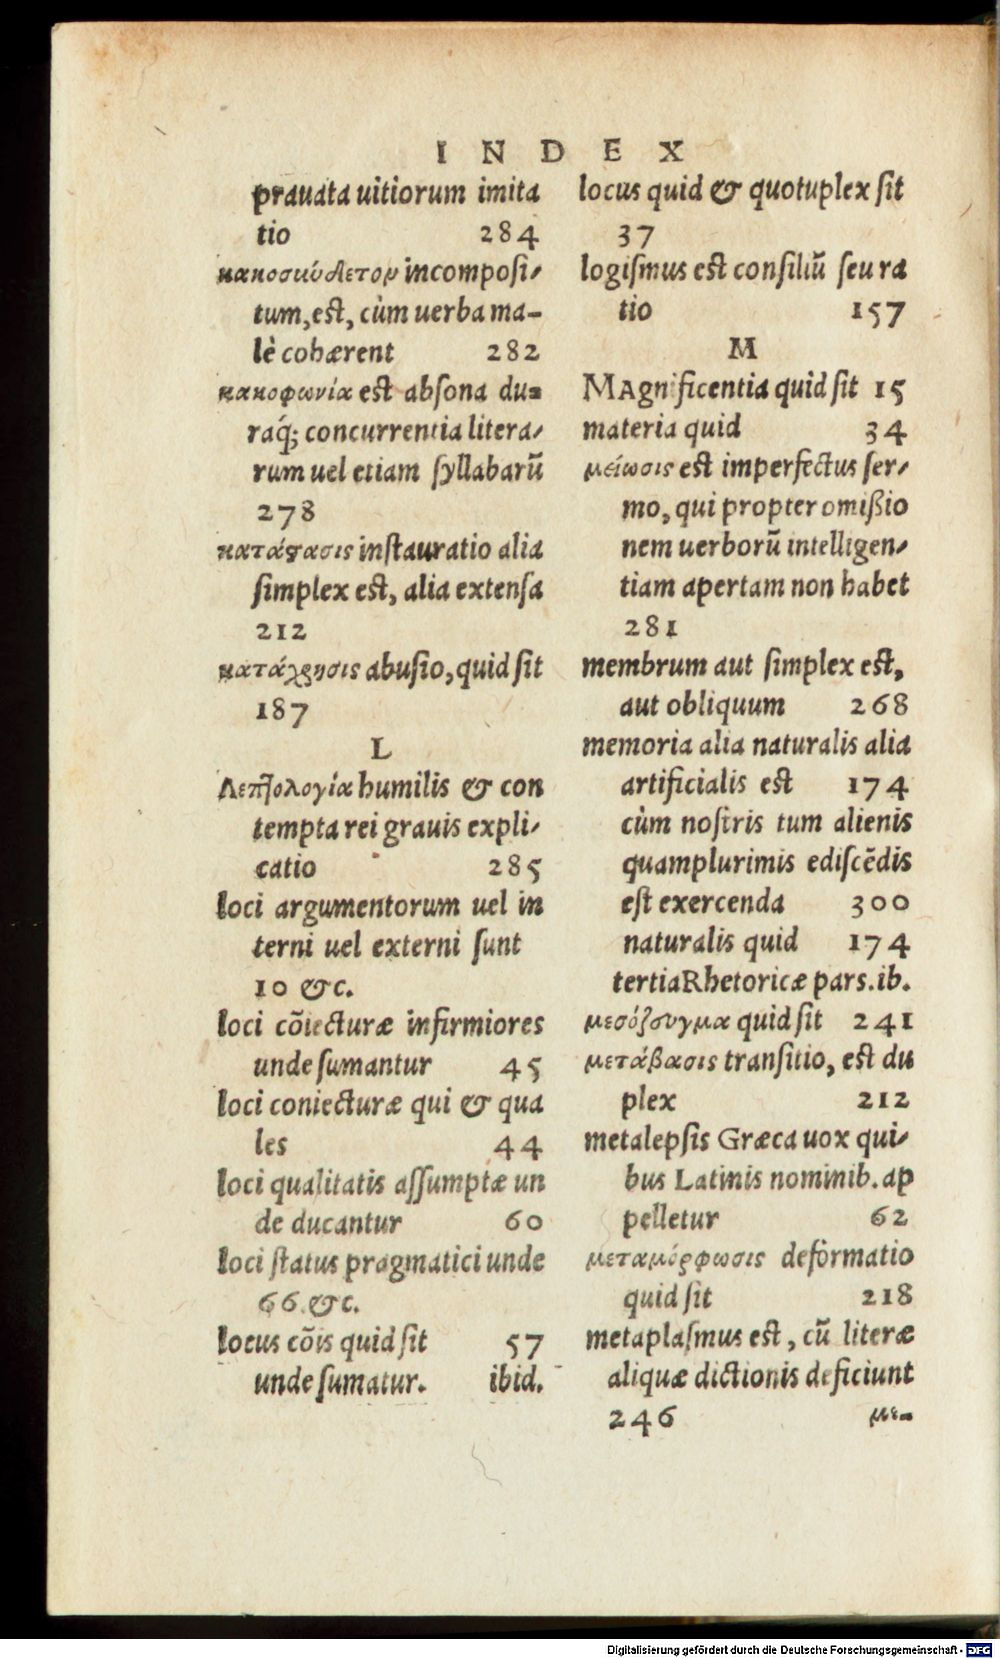 INDEX
prauata uitiorum imita
tio 284
κακοσύνθετον incomposi-
tum, est, cùm uerba ma-
lè cohærent 282
κακοφωνία est absona du=
raq́; concurrentia litera-
rum uel etiam syllabarũ
278
κατάϛασις instauratio alia
simplex est, alia extensa
212
κατάχρησις abusio, quid sit
187
L
Λεπτολογία humilis & con
tempta rei grauis expli-
catio 285
loci argumentorum uel in
terni uel externi sunt
10 &c.
loci cõiecturæ infirmiores
unde sumantur 45
loci coniecturæ qui & qua
les 44
loci qualitatis assumptæ un
de ducantur 60
loci status pragmatici unde
66. &c.
locus cõis quid sit 57
unde sumatur. ibid.
locus quid & quotuplex sit
37
logismus est consiliũ seu ra
tio 157
M
MAgnificentia quid sit 15
materia quid 34
μείωσις est imperfectus ser-
mo, qui propter omißio
nem uerborũ intelligen-
tiam apertam non habet
281
membrum aut simplex est,
aut obliquum 268
memoria alia naturalis alia
artificialis est 174
cùm nostris tum alienis
quamplurimis ediscẽdis
est exercenda 300
naturalis quid 174
tertia Rhetoricæ pars. ib.
μεσόζευγμα quid sit 241
μετάβασις transitio, est du
plex 212
metalepsis Græca uox qui-
bus Latinis nominib. ap
pelletur 62
μεταμόρφωσις deformatio
quid sit 218
metaplasmus est, cũ literæ
aliquæ dictionis deficiunt
246 με=
Digitalisierung gefördert durch die Deutsche Forschungsgemeinschaft - DFG